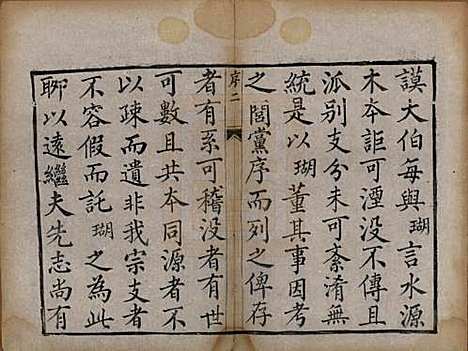 謨大伯每與瑚言水源
木本詎可湮没不傳且
派别支分未可紊淆無
統是以瑚董其事因考
之閭黨序而列之俾存
序二
者有系可稽没者有世
可數且共本同源者不
以疎而遺非我宗支者
不容假而託瑚之為此
聊以遠繼夫先志尚有